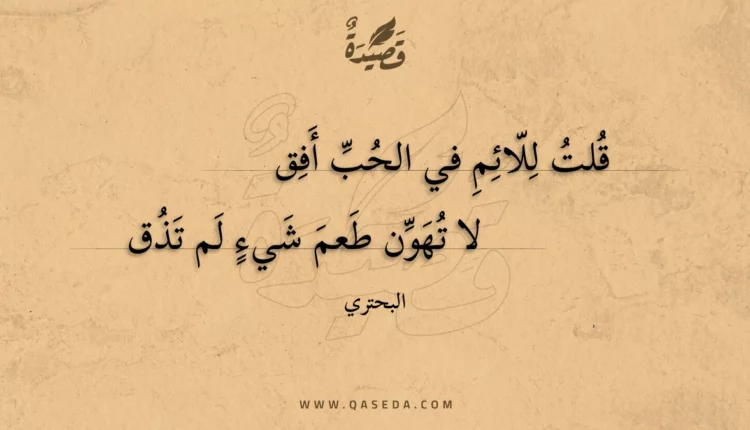 قَصِيْدَةٌ
قُلتُ لِلّائِمِ في الحُبِّ أَفِق
لا تُهَوِّن طَعمَ شَيءٍ لَم تَذُق
البحتري
WWW.QASEDA.COM